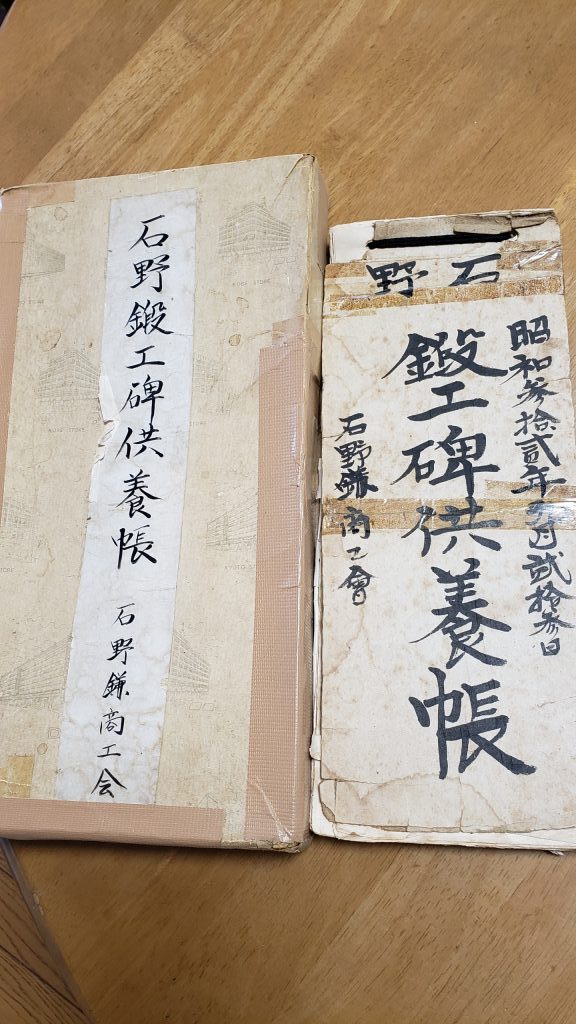 石野鍛工碑供養帳
石野鎌商工会
KOBE STORE
KYOTO STORE
石野
昭和参拾弐年 月弐拾参日
鍛工碑供養帳
石野鎌商工會